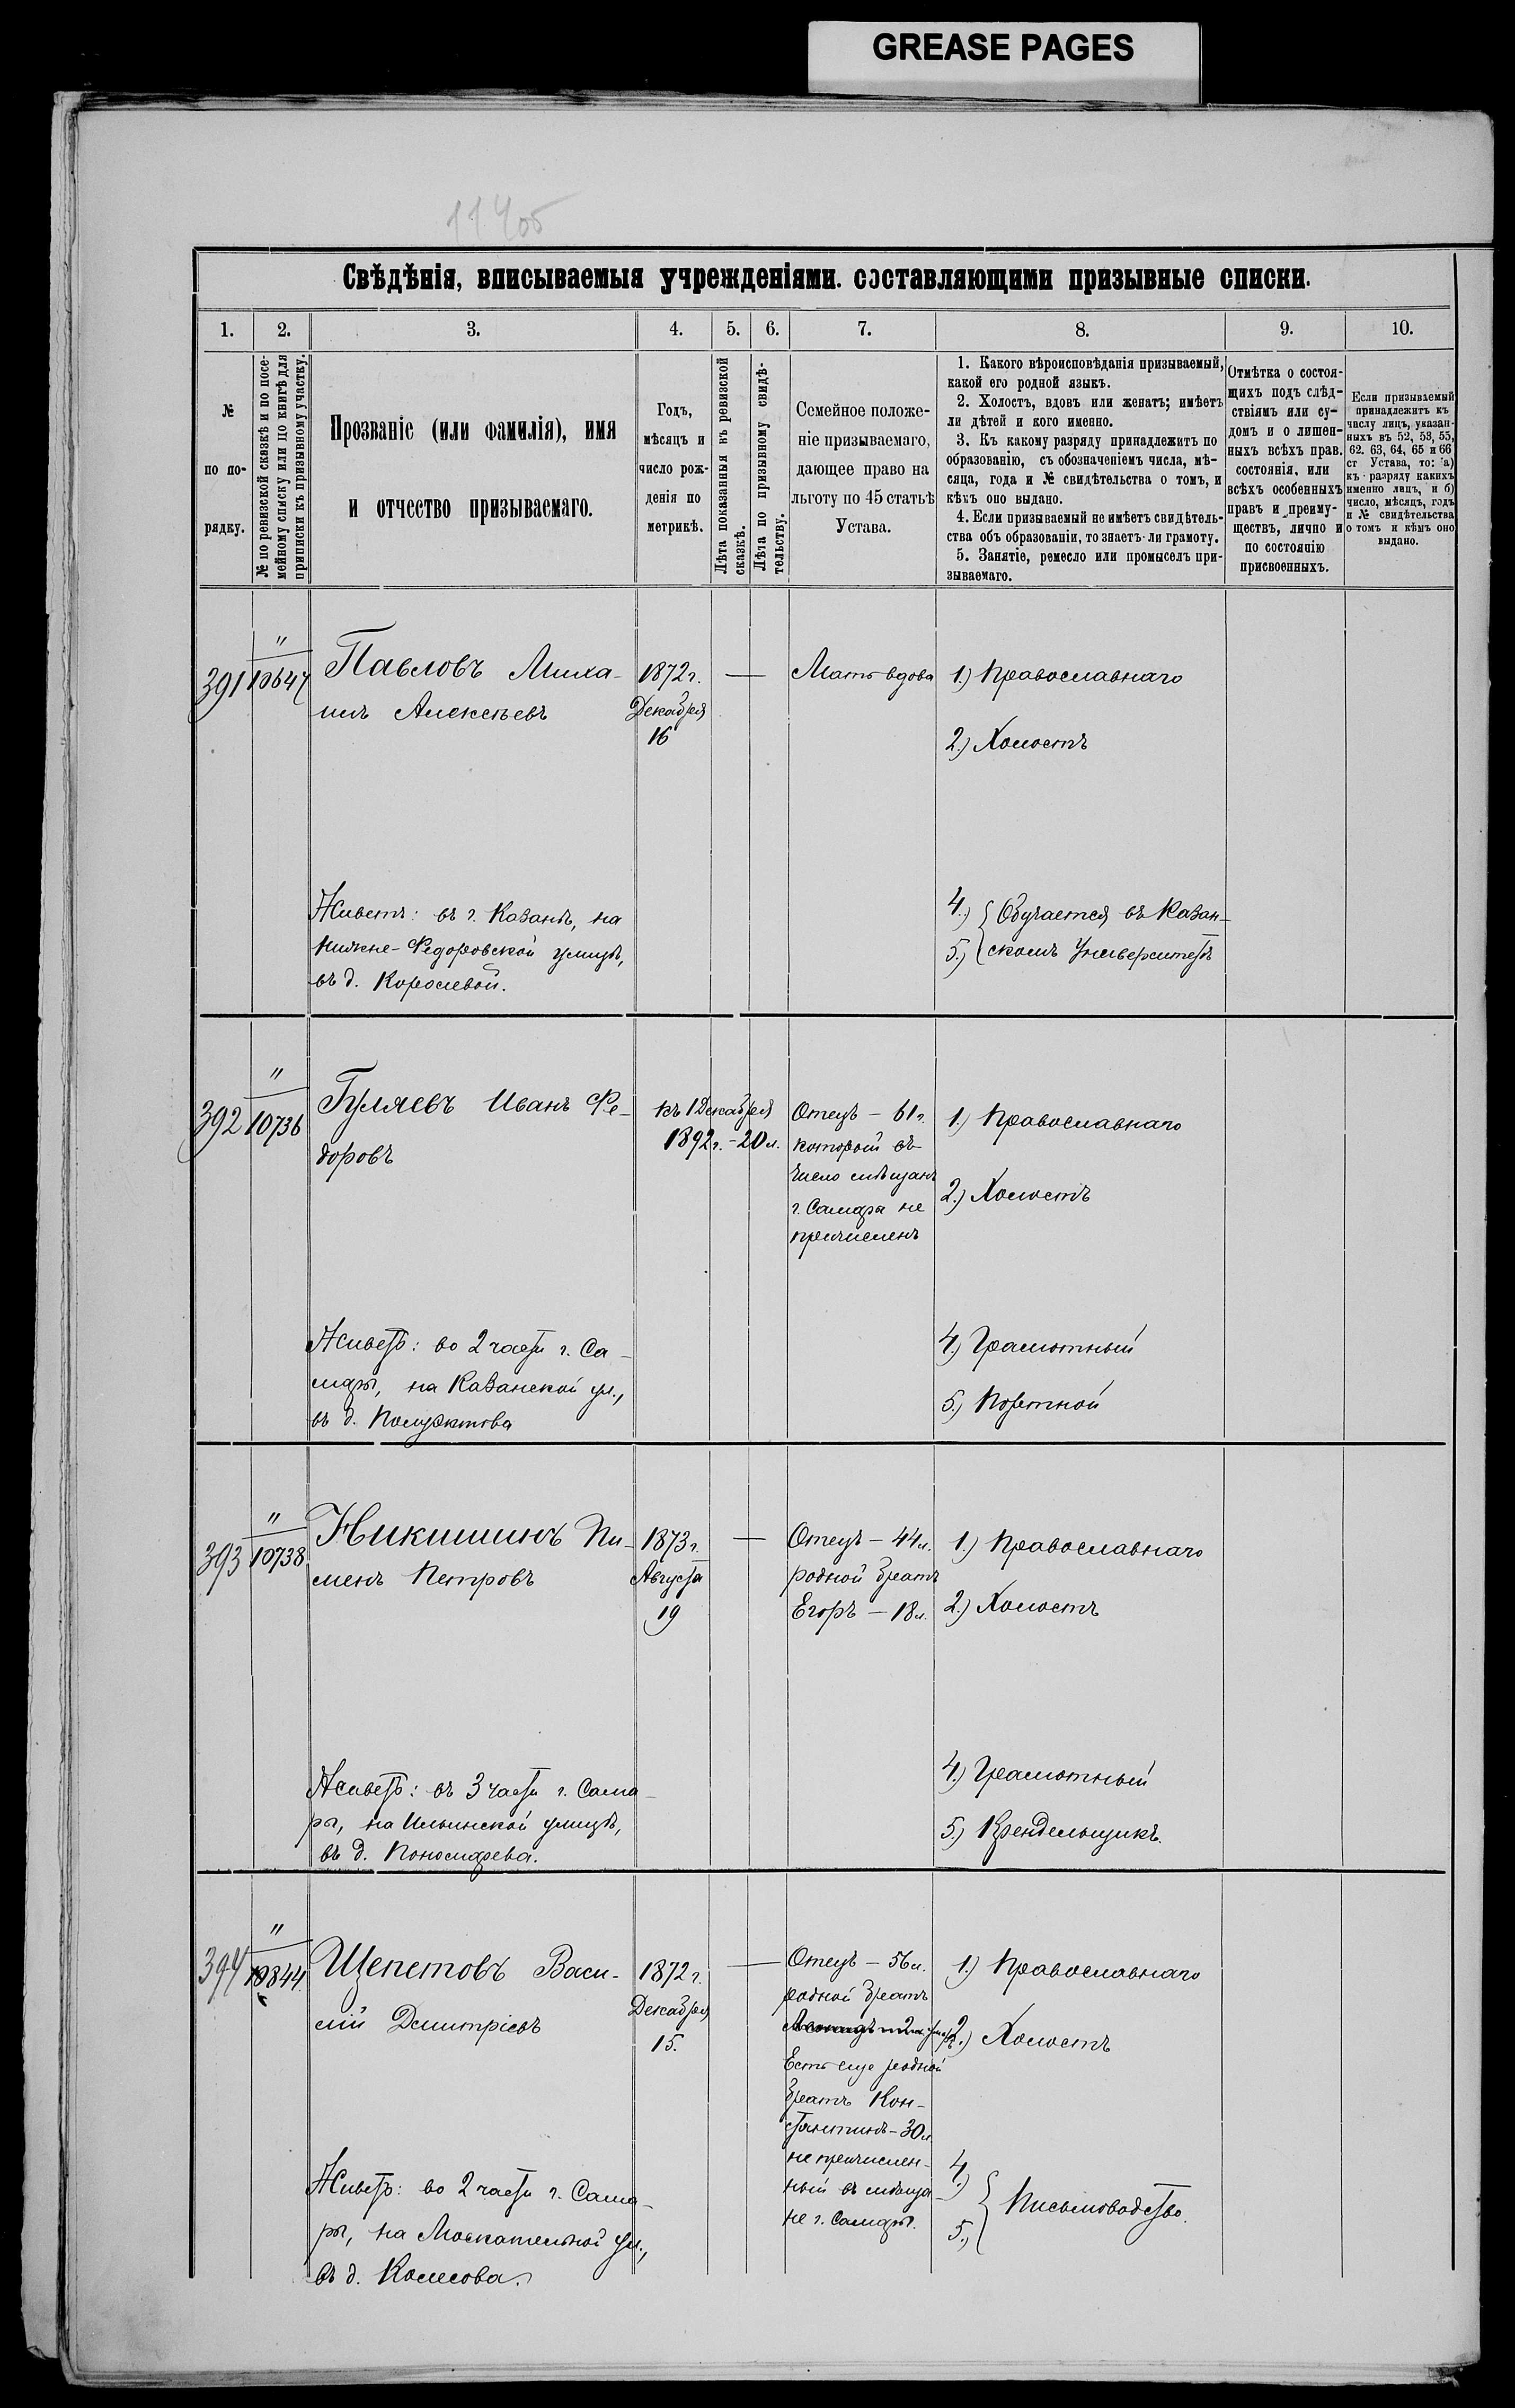 GREASE PAGES
Свѣдѣнія, вписываемыя учрежденіями, составляющими призывные списки.
1. 2. 3. 4. 5. 6. 7. 8. 9. 10.
№
по по-
рядку.
№ по ревизской сказкѣ и по посе-
мейному списку или по книгѣ для
приписки къ призывному участку.
Прозваніе (или фамилія), имя
и отчество призываемаго.
Годъ,
мѣсяцъ и
число рож-
денія по
метрикѣ.
Лѣта показанныя къ ревизской
сказкѣ.
Лѣта по призывному свидѣ-
тельству.
Семейное положе-
ніе призываемаго,
дающее право на
льготу по 45 статьѣ
Устава.
1. Какого вѣроисповѣданія призываемый,
какой его родной языкъ.
2. Холостъ, вдовъ или женатъ; имѣетъ
ли дѣтей и кого именно.
3. Къ какому разряду принадлежитъ по
образованію, съ обозначеніемъ числа, мѣ-
сяца, года и № свидѣтельства о томъ, и
кѣхъ оно выдано.
4. Если призываемый не имѣетъ свидѣтель-
ства объ образованіи, то знаетъ-ли грамоту.
5. Занятіе, ремесло или промыселъ при-
зываемаго.
Отмѣтка о состоя-
щихъ подъ слѣд-
ствіямъ или су-
домъ и о лишен-
ныхъ всѣхъ прав.
состоянія, или
всѣхъ особенныхъ
правъ и преиму-
ществъ, лично и
по состоянію
присвоенныхъ.
Если призываемый
принадлежитъ къ
числу лицъ, указан-
ныхъ въ 52, 53, 55,
62, 63, 64, 65 и 66
ст Устава, то: а)
къ разряду какихъ
именно лицъ, и б)
число, мѣсяцъ, годъ
и № свидѣтельства
о томъ и кѣмъ оно
выдано.
391
"
10647
Павловъ Миха-
илъ Алексѣевъ
1872 г.
Декабря
16
—
Мать вдова
1.) Православнаго
2.) Холостъ
Живетъ: въ г. Казанѣ, на
Нижне-Федоровской улицѣ,
въ д. Королевой.
4.) Обучается въ Казан-
5.) скомъ Университетѣ
392
"
10736
Гуляевъ Иванъ Фе-
доровъ
къ 1 Декабря
1892 г. - 20 л.
Отецъ - 61 г.
который въ
число мѣщанъ
г. Самара не
причисленъ
1.) Православнаго
2.) Холостъ
Живетъ: во 2 части г. Са-
мары, на Казанской ул.,
въ д.
4.) Грамотный
5.) Портной
393
"
10738
Никишинъ Пи-
менъ Петровъ
1873 г.
Августа
19
—
Отецъ - 44 л.
родной братъ
Егоръ - 18 л.
1.) Православнаго
2.) Холостъ
Живетъ: въ 3 части г. Сама-
ры, на Ильинской улицѣ,
въ д. Пономарева.
4.) Грамотный
5.) Крендельщикъ.
394
"
10844
Щепетовъ Васи-
лій Дмитріевъ
1872 г.
Декабря
15.
—
Отецъ - 56 л.
родной братъ
Есть еще родной
братъ Кон-
стантинъ - 30 л.
не причислен-
ный въ мѣща-
не г. Самары.
1.) Православнаго
2.) Холостъ
Живетъ: во 2 части г. Сама-
ры, на Москательной ул.,
въ д. Колесова.
4.)
5.) Письмоводство.